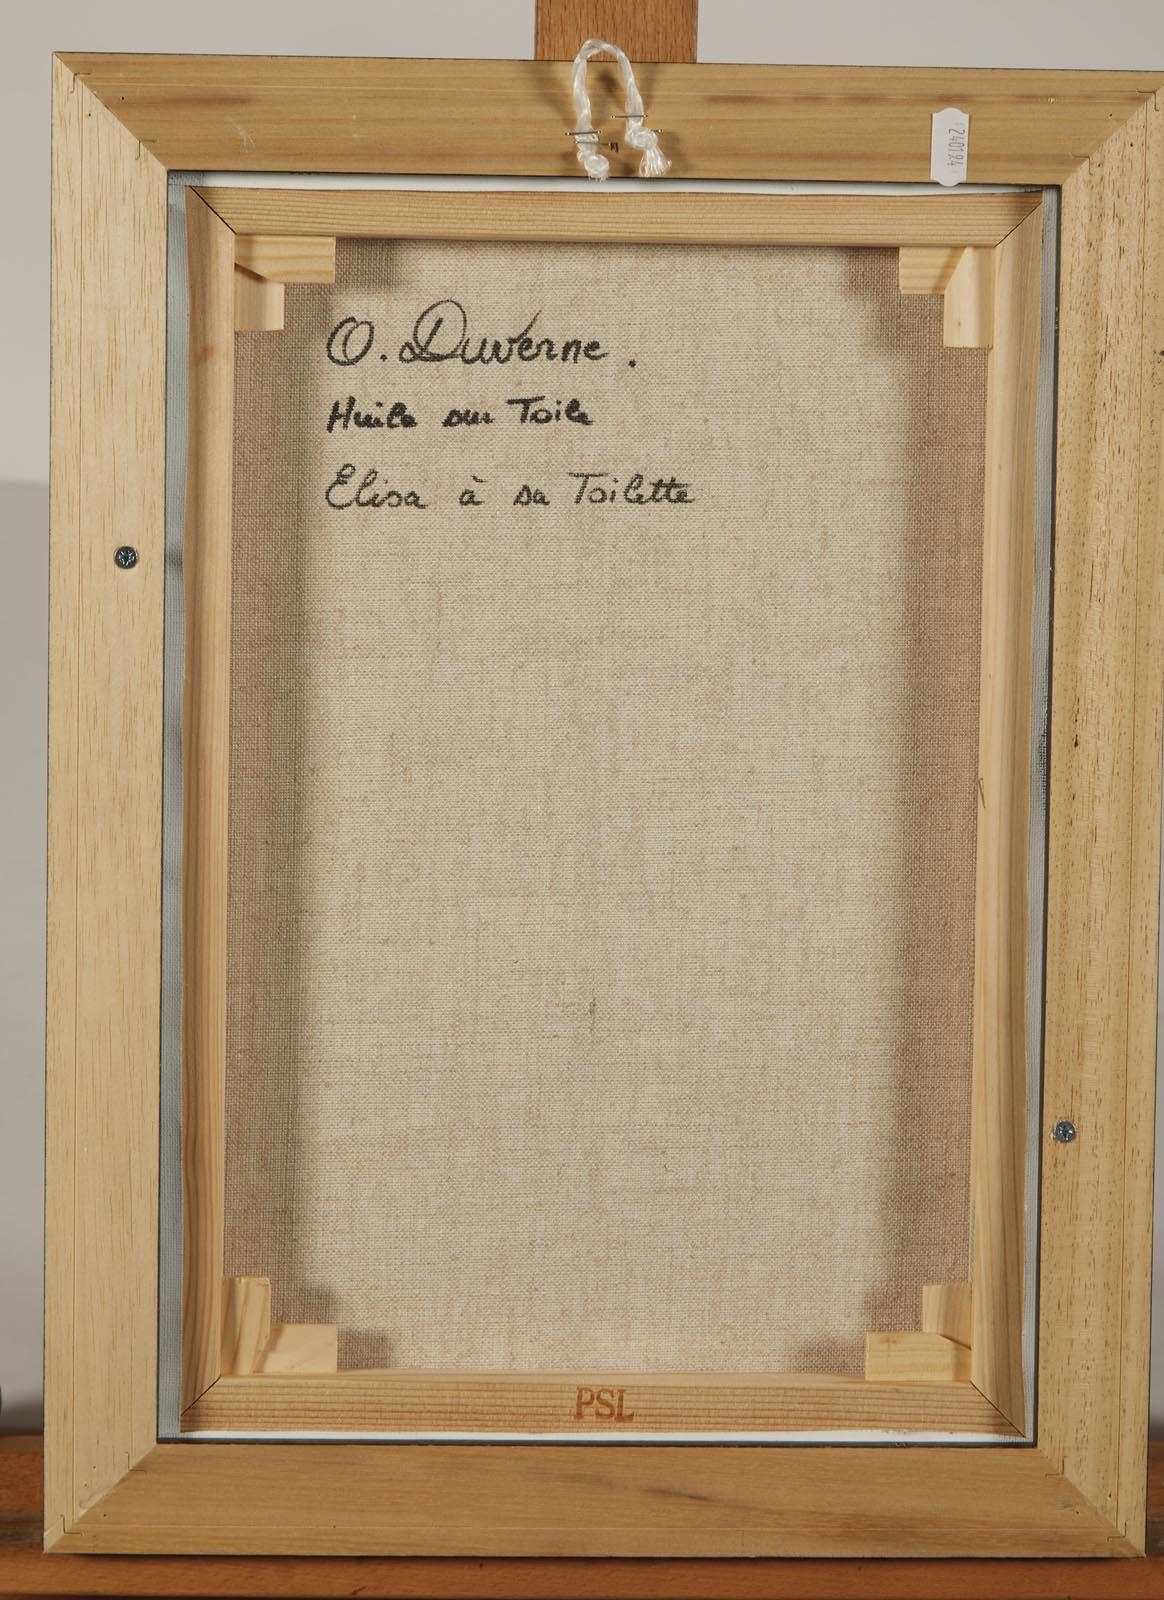 240194
O. Duverne.
Huile sur Toile
Elisa à sa Toilette
PSL